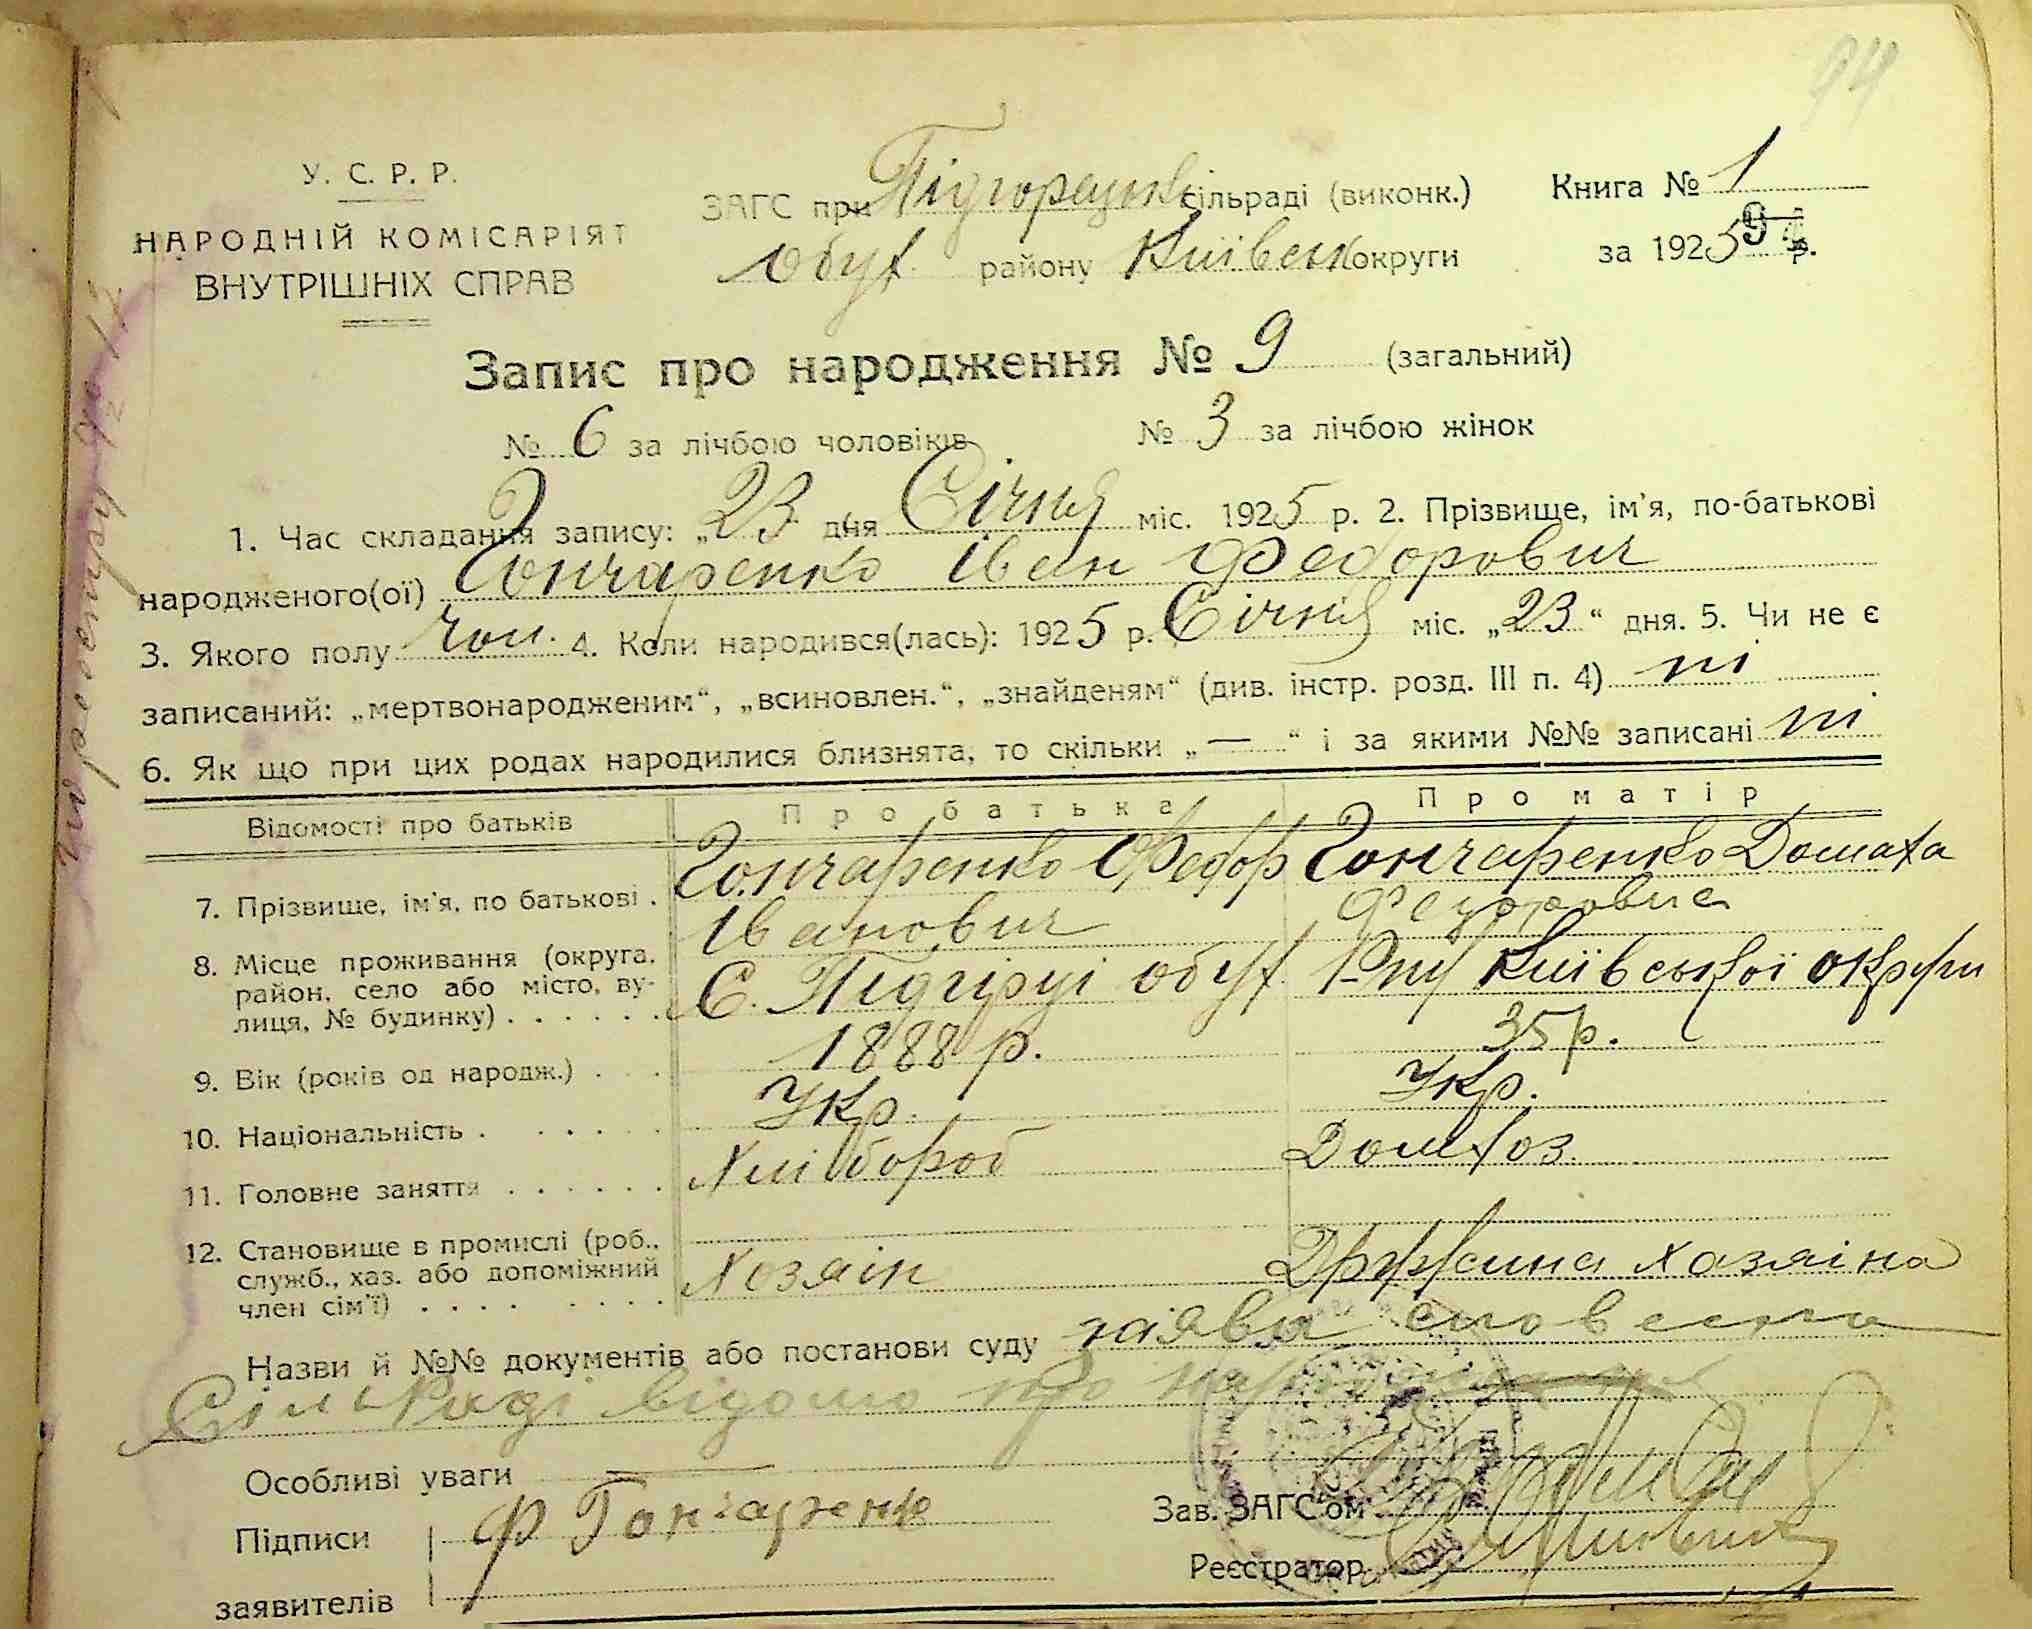 94
У. С. Р. Р.
НАРОДНІЙ КОМІСАРІЯТ
ВНУТРІШНІХ СПРАВ
ЗАГС при Підгорецькі сільраді (виконк.)
Обух. району Київськ округи
Книга № 1
за 1925 р.
94
Запис про народження № 9 (загальний)
№ 6 за лічбою чоловіків № 3 за лічбою жінок
1. Час складання запису: „23 дня Січня міс. 1925 р. 2. Прізвище, ім'я, по-батькові
народженого(ої) Гончаренко Іван Федорович
3. Якого полу чол. 4. Коли народився(лась): 1925 р. Січня міс. „23“ дня. 5. Чи не є
записаний: „мертвонародженим“, „всиновлен.“, „знайденям“ (див. інстр. розд. III п. 4) ні
6. Як що при цих родах народилися близнята, то скільки „—“ і за якими №№ записані ні
Відомості про батьків Про батька Про матір
7. Прізвище, ім'я, по батькові . Гончаренко Федор Іванович Гончаренко Домаха Федоровна
8. Місце проживання (округа, район, село або місто, вулиця, № будинку) . . . . . . С. Підгірці обух. Р-ну Київської округи
9. Вік (років од народж.) . . . 1888 р. 35 р.
10. Національність . . . . . . Укр. Укр.
11. Головне заняття . . . . . . Хлібороб Домхоз.
12. Становище в промислі (роб., служб., хаз. або допоміжний член сім'ї) . . . . . . . . Хозяін Дружина хазяіна
Назви й №№ документів або постанови суду заява словесна
СільРаді відомо про
Особливі уваги —
Підписи
заявителів
Ф Гончаренко
Зав. ЗАГСом
Реєстратор